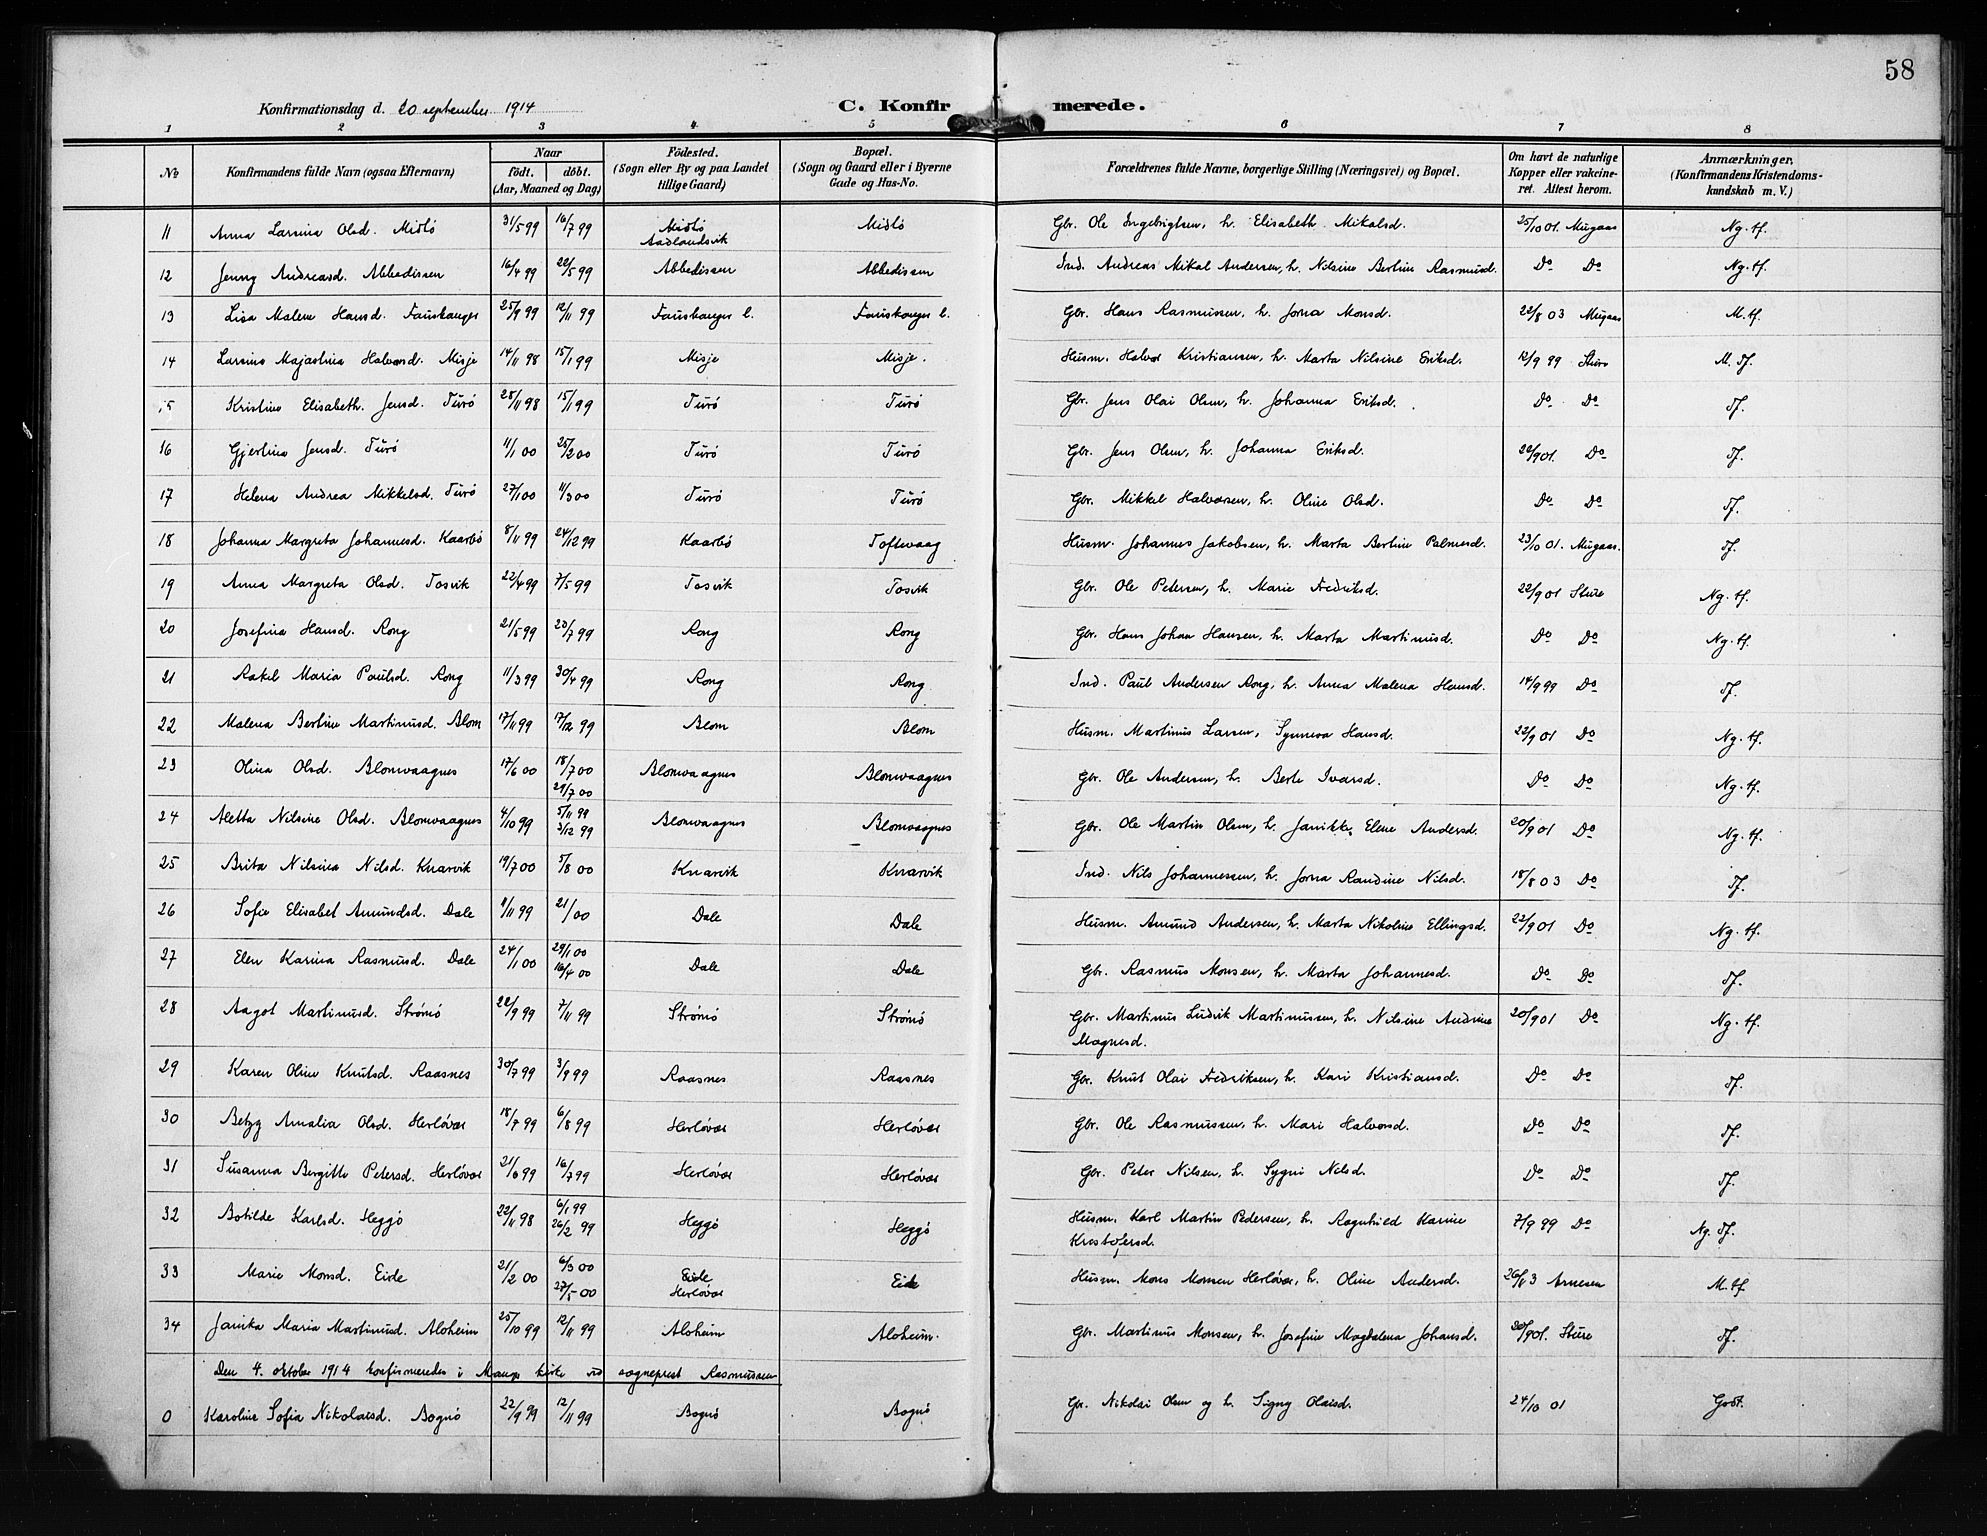 58
Konfirmationsdag d. 20 september 1914 C. Konfirmerede.
1 2 3 4 5 6 7 8
No Konfirmandens fulde Navn (ogsaa Efternavn) Naar født. døbt. (Aar, Maaned og Dag) Fødested. (Sogn eller By og paa Landet tillige Gaard) Bopæl. (Sogn og Gaard eller i Byerne Gade og Hus-No. Forældrenes fulde Navne, borgerlige Stilling (Næringsvei) og Bopæl. Om havt de naturlige Kopper eller vakcineret. Attest herom. Anmærkninger, (Konfirmandens Kristendomskundskab m. V.)
11 Anna Larsina Olsd. Midtö 31/5 99 16/7 99 Midtö Aadlandsvik Midtö Gbr. Ole Ingebrigtsen, h. Elisabeth Mikalsd. 25/10 01. Mugaas Ng. tf.
12 Jenny Andreasd. Abbedissen 16/4 99 22/5 99 Abbedissen Abbedissen Ind. Andreas Mikal Andersen, h. Nilsine Bertine Rasmusd. Do Do Ng. tf.
13 Lisa Malene Hansd. Fauskanger 25/9 99 12/11 99 Fauskanger l. Fauskanger l. Gbr. Hans Rasmussen, h. Jorna Monsd. 22/8 03 Mugaas M. tf.
14 Larsine Majastina Halvorsd. Misje 14/11 98 15/1 99 Misje Misje. Husm. Halvor Kristiansen, h. Marta Nilsine Eriksd. 12/9 99 Sture M. Tf.
15 Kristine Elisabeth. Jensd. Turö 28/11 98 15/1 99 Turö Turö Gbr. Jens Olai Olsen, h. Johanna Eriksd. Do Do Tf.
16 Gjertine Jensd. Turö 11/1 00 25/2 00 Turö Turö Gbr. Jens Olsen, h. Johanna Eriksd. 22/9 01. Do Tf.
17 Helena Andrea Mikkelsd. Turö 27/1 00 11/3 00 Turö Turö Gbr. Mikkel Halvorsen, h. Oline Olsd. Do Do Tf.
18 Johanna Margreta Johannesd. Kaarbö 8/11 99 24/12 99 Kaarbö Toftevaag Husm. Johannes Jakobsen, h. Marta Bertine Palmesd. 23/10 01. Mugaas. Tf.
19 Anna Margreta Olsd. Tosvik 22/4 99 7/5 99 Tosvik Tosvik Gbr. Ole Petersen, h. Marie Fredriksd. 22/9 01 Sture Ng. tf.
20 Josefina Hansd. Rong 21/5 99 20/7 99 Rong Rong Gbr. Hans Johan Hansen, h. Marta Martinusd. Do Do Ng. tf.
21 Rakel Maria Paulsd. Rong 11/3 99 30/4 99 Rong Rong Ind. Paul Andersen Rong, h. Anna Malena Hansd. 14/9 99 Do Tf.
22 Malena Bertine Martinusd. Blom 17/11 99 17/12 99 Blom Blom Husm. Martinus Larsen, Synneva Hansd. 22/9 01 Do Ng. tf.
23 Olina Olsd. Blomvaagnes 17/6 00 18/7 00 29/7 00 Blomvaagnes Blomvaagnes Gbr. Ole Andersen, h. Berte Ivarsd. Do Do Ng. tf.
24 Aletta Nilsine Olsd. Blomvaagnes 4/10 99 5/11 99 3/12 99 Blomvaagnes Blomvaagnes Gbr. Ole Martin Olsen, h. Janikke Elene Andersd. 20/9 01 Do Ng. tf.
25 Brita Nilsina Nilsd. Knarvik 19/7 00 5/8 00 Knarvik Knarvik Ind. Nils Johannessen, h. Jorna Randine Nilsd. 18/8 03 Do Tf.
26 Sofie Elisabet Amundsd. Dale 9/11 99 21/1 00 Dale Dale Husm. Amund Andersen, h. Marta Nikoline Ellingsd. 22/9 01 Do Ng. tf.
27 Elen Karina Rasmusd. Dale 24/1 00 29/1 00 16/4 00 Dale Dale Gbr. Rasmus Monsen, h. Marta Johannesd. Do Do Tf.
28 Aagot Martinusd. Strömö 22/9 99 7/11 99 Strömö Strömö Gbr. Martinus Ludvik Martinussen, h. Nilsine Andrine Magnesd. 20/9 01 Do Ng. tf.
29 Karen Oline Knutsd. Raasnes 30/7 99 3/9 99 Raasnes Raasnes Gbr. Knut Olai Fredriksen, h. Kari Kristiansd. Do Do Tf.
30 Betzy Amalia Olsd. Herlövær 18/7 99 6/8 99 Herlövær Herlövær Gbr. Ole Rasmussen, h. Mari Halvorsd. Do Do Tf.
31 Susanna Bergitte Petersd. Herlövær 21/6 99 16/7 99 Herlövær Herlövær Gbr. Peter Nilsen, h. Sygni Nilsd. Do Do Tf.
32 Botilde Karlsd. Heggö 22/11 98 6/1 99 26/2 99 Heggö Heggö Husm. Karl Martin Pedersen, h. Ragnhild Karine Kristofersd. 7/9 99 Do Ng. Tf.
33 Marie Monsd. Eide 21/2 00 6/3 00 27/5 00 Eide Herlövær Eide Husm. Mons Monsen Herlövær, h. Oline Andersd. 26/11 3 Arnesen M. tf
34 Janika Maria Martinusd. Aloheim 25/10 99 12/11 99 Aloheim Aloheim. Gbr. Martinus Monsen, h. Josefine Magdalena Johansd. 20/9 01. Sture Tf.
Den 4. oktober 1914 konfirmeredes i Mangr kirke ved sogneprest Rasmussen
0 Karoline Sofia Nikolaisd. Bognö 22/9 99 12/11 99 Bognö Bognö Gr. Nikolai Olsen og h. Signy Olaisd. 24/10 01 Godt.